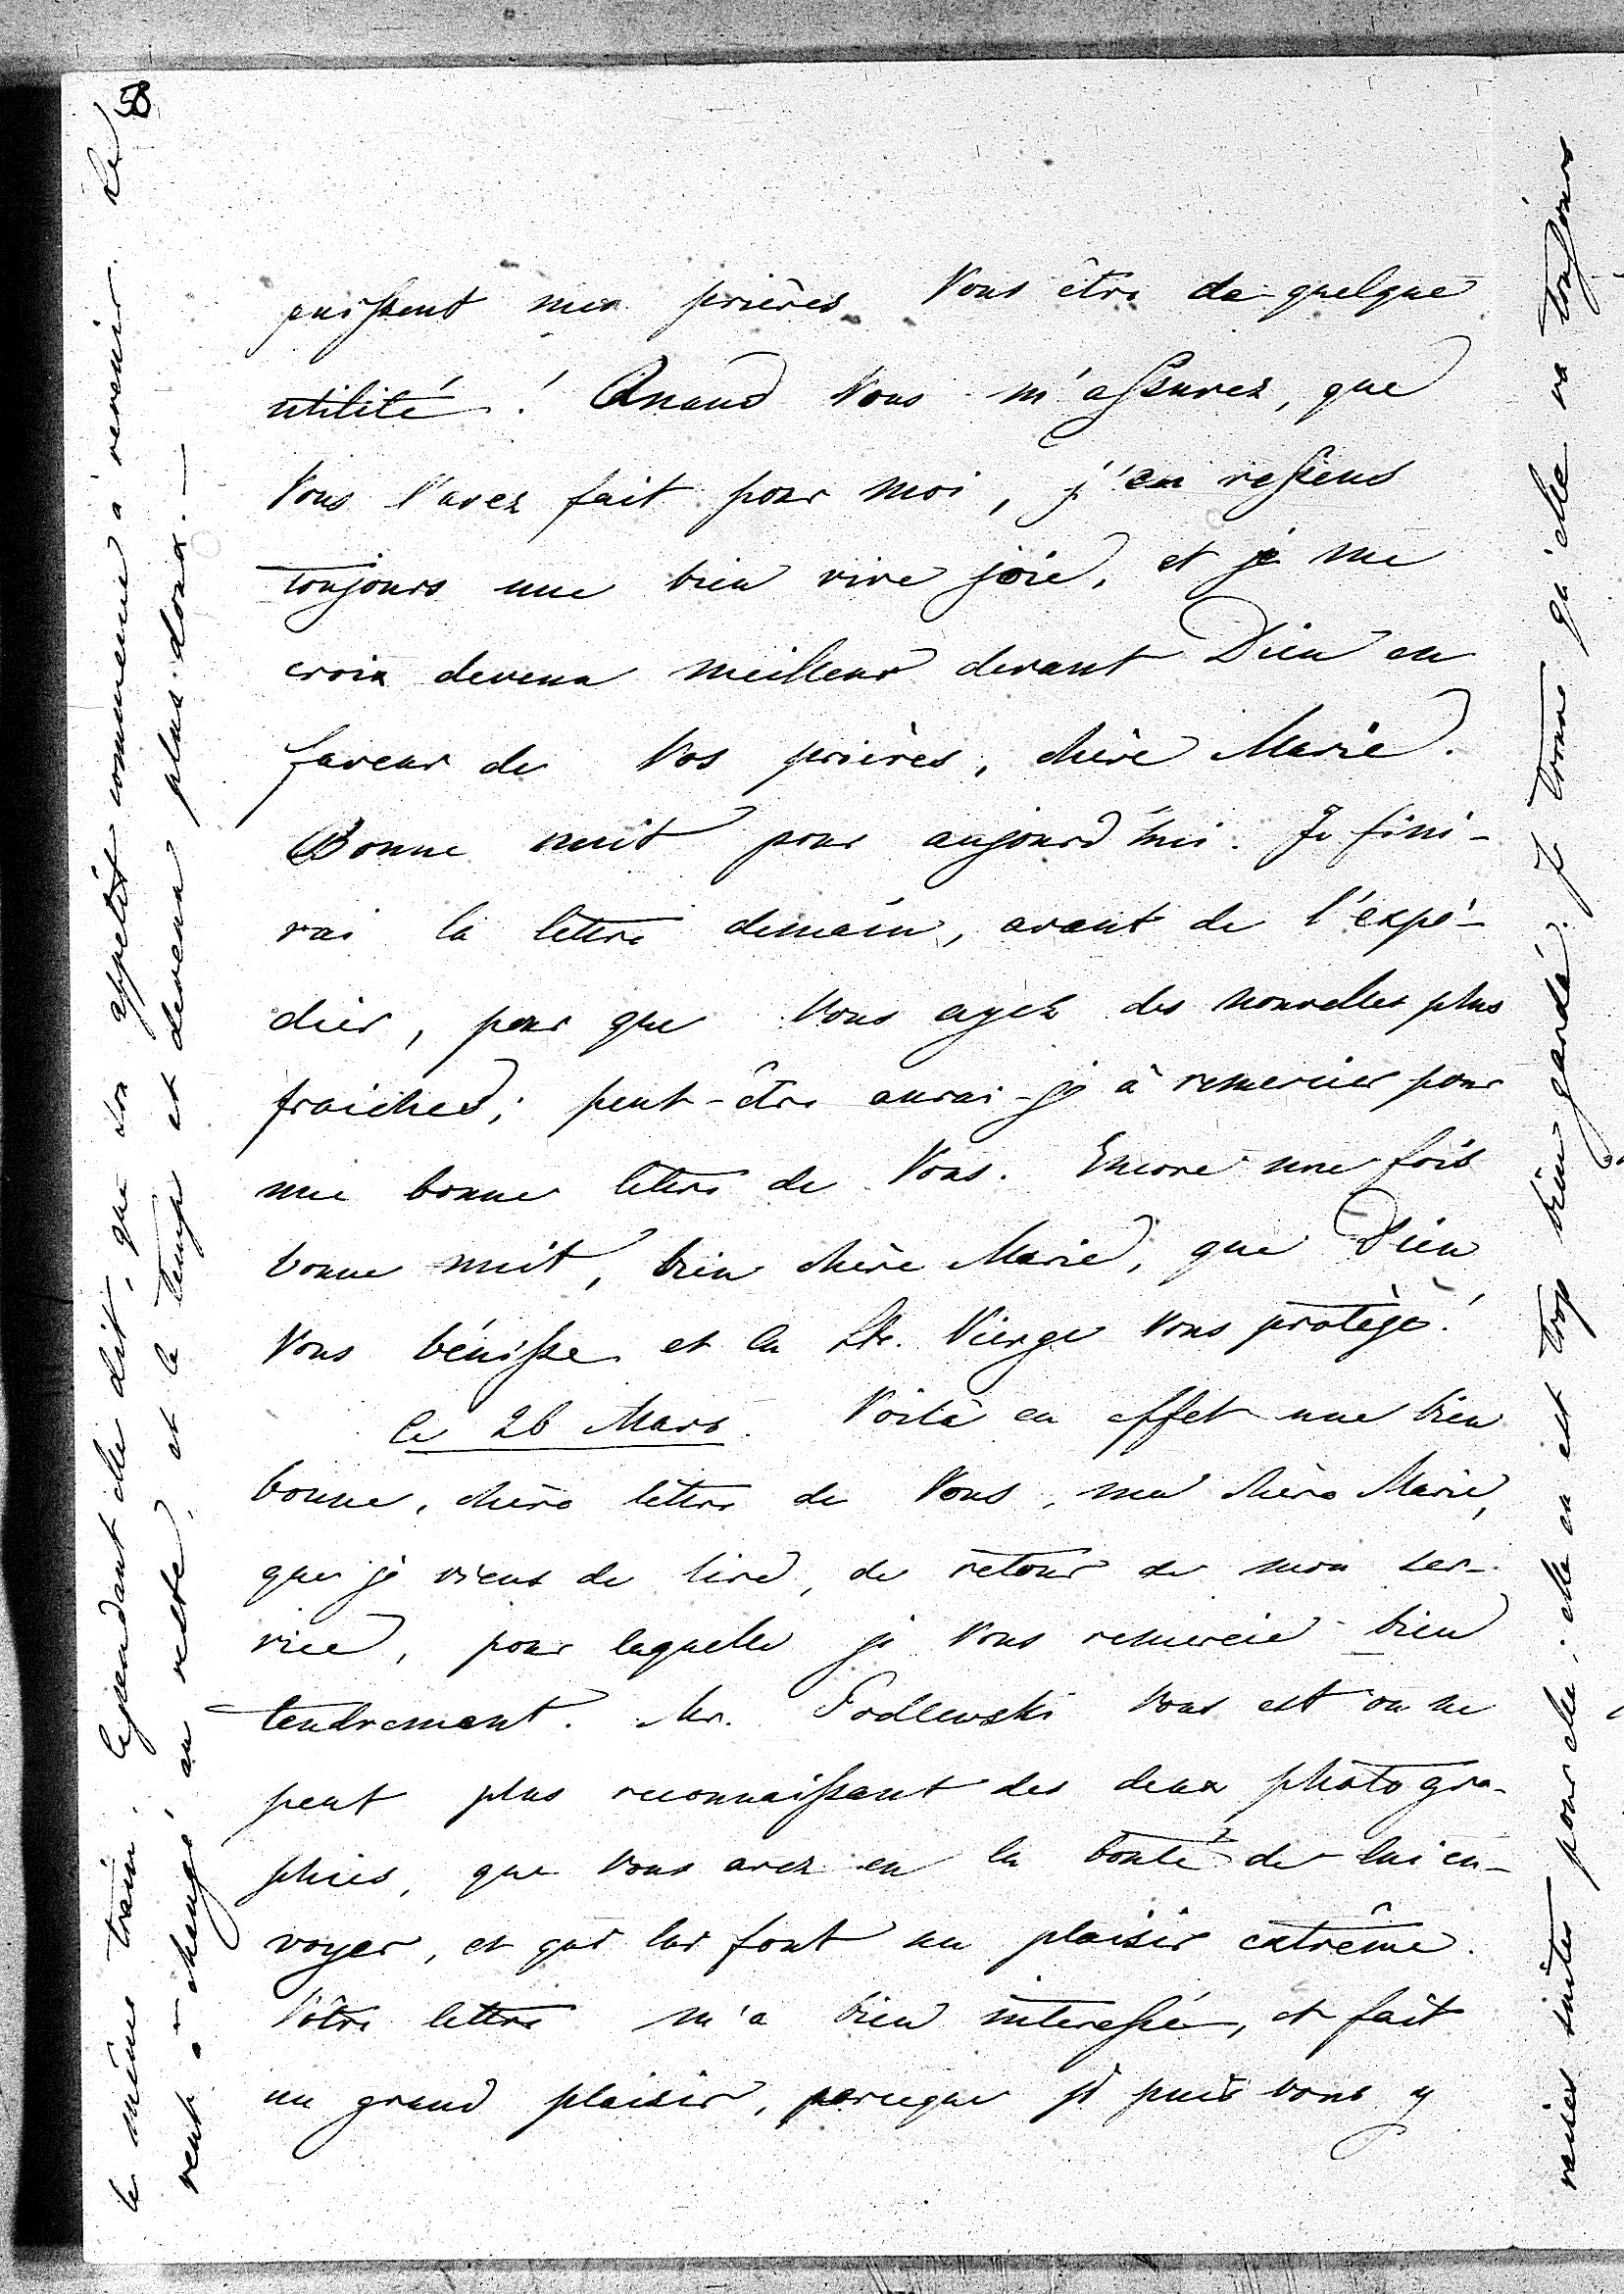 58
puissent mes prières Vous être de quelque
utilité! Quand Vous m'assurez, que
Vous l'avez fait pour moi, j'en ressens
toujours une bien vive joie, et je me
crois devenu meilleur devant Dieu en
faveur de Vos prières, chère Marie.
Bonne nuit pour aujourd'hui. Je fini-
rai la lettre demain, avant de l'expé-
dier, pour que Vous ayez des nouvelles plus
fraiches; peut-être aurai-je à remercier pour
une bonne lettre de Vous. Encore une fois
bonne nuit, bien chère Marie, que Dieu
Vous bénisse et la Ste. Vierge Vous protège!
Ce 26 Mars. Voilà en effet une bien
bonne, chère lettre de Vous, ma chère Marie,
que je viens de lire, de retour de mon ser-
vice, pour laquelle je Vous remercie bien
tendrement. Mr. Podlewski Vous est on ne
peut plus reconnaissant des deux photogra-
phies, que Vous avez eu la bonté de lui en-
voyer, et qui lui font un plaisir extrême.
Vôtre lettre m'a bien interessé, et fait
un grand plaisir, parceque je puis Vous y
le même train. Cependant elle dit, que son appetit commence à revenir. Le
vent a changé, au reste, et le temps est devenu plus doux. —
vaises suites pour elle, elle en est trop bien gardée. Je trouve qu'elle va toujours